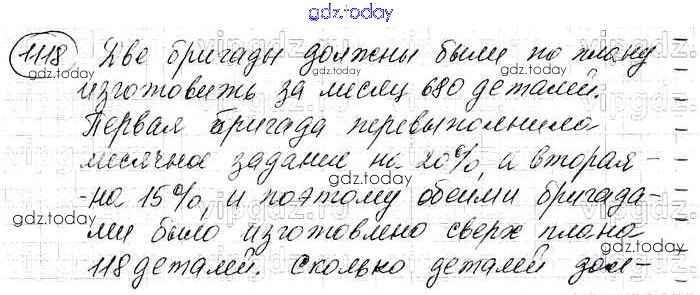 gdz.today
1118 Две бригады должны были по плану
изготовить за месяц 680 деталей.
Первая бригада перевыполнила
месячное задание на 20%, а вторая -
- на 15%, и поэтому обеими бригада-
ми было изготовлено сверх плана
118 деталей. Сколько деталей дол-